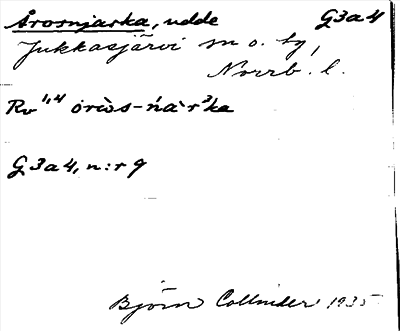 Årosnjarka, udde G3a4
Jukkasjärvi sn o. tg,
Norrb. l.
Rv 1,4 óròs-ńà·r³ka
G3a4, n:r 9
Björn Collinder 1935